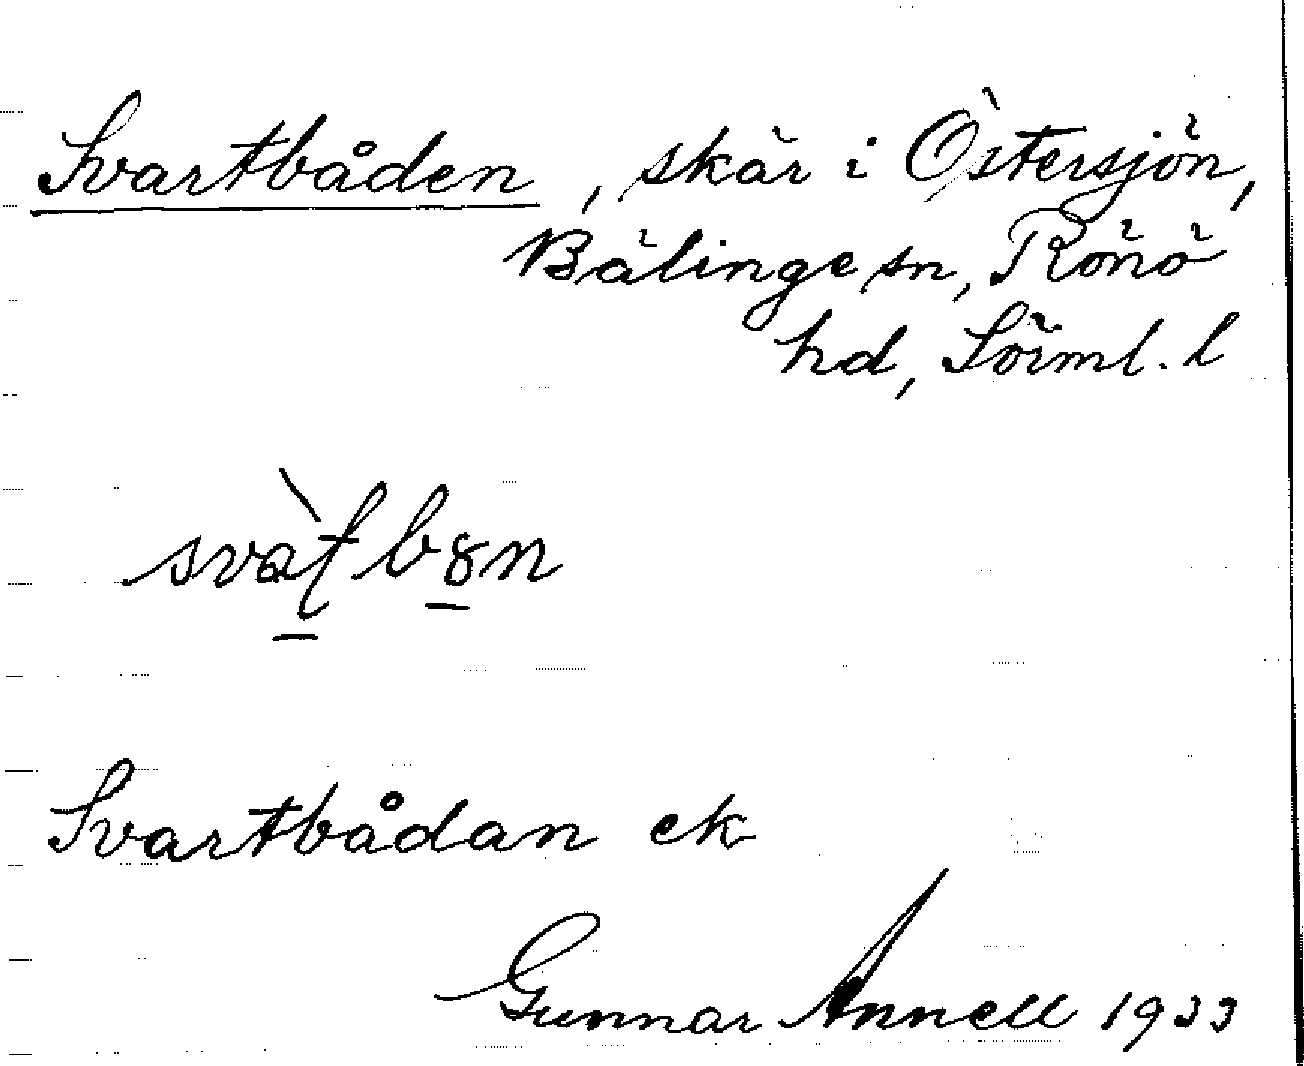 Svartbåden, skär i Östersjön,
Bälinge sn, Rönö
hd, Söiml. l
svat̠ bȣ̠n
Svartbådan ek
Gunnar Annell 1933